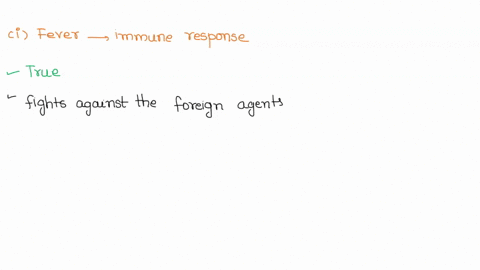 (i) Fever → immune response
- True
- fights against the foreign agents